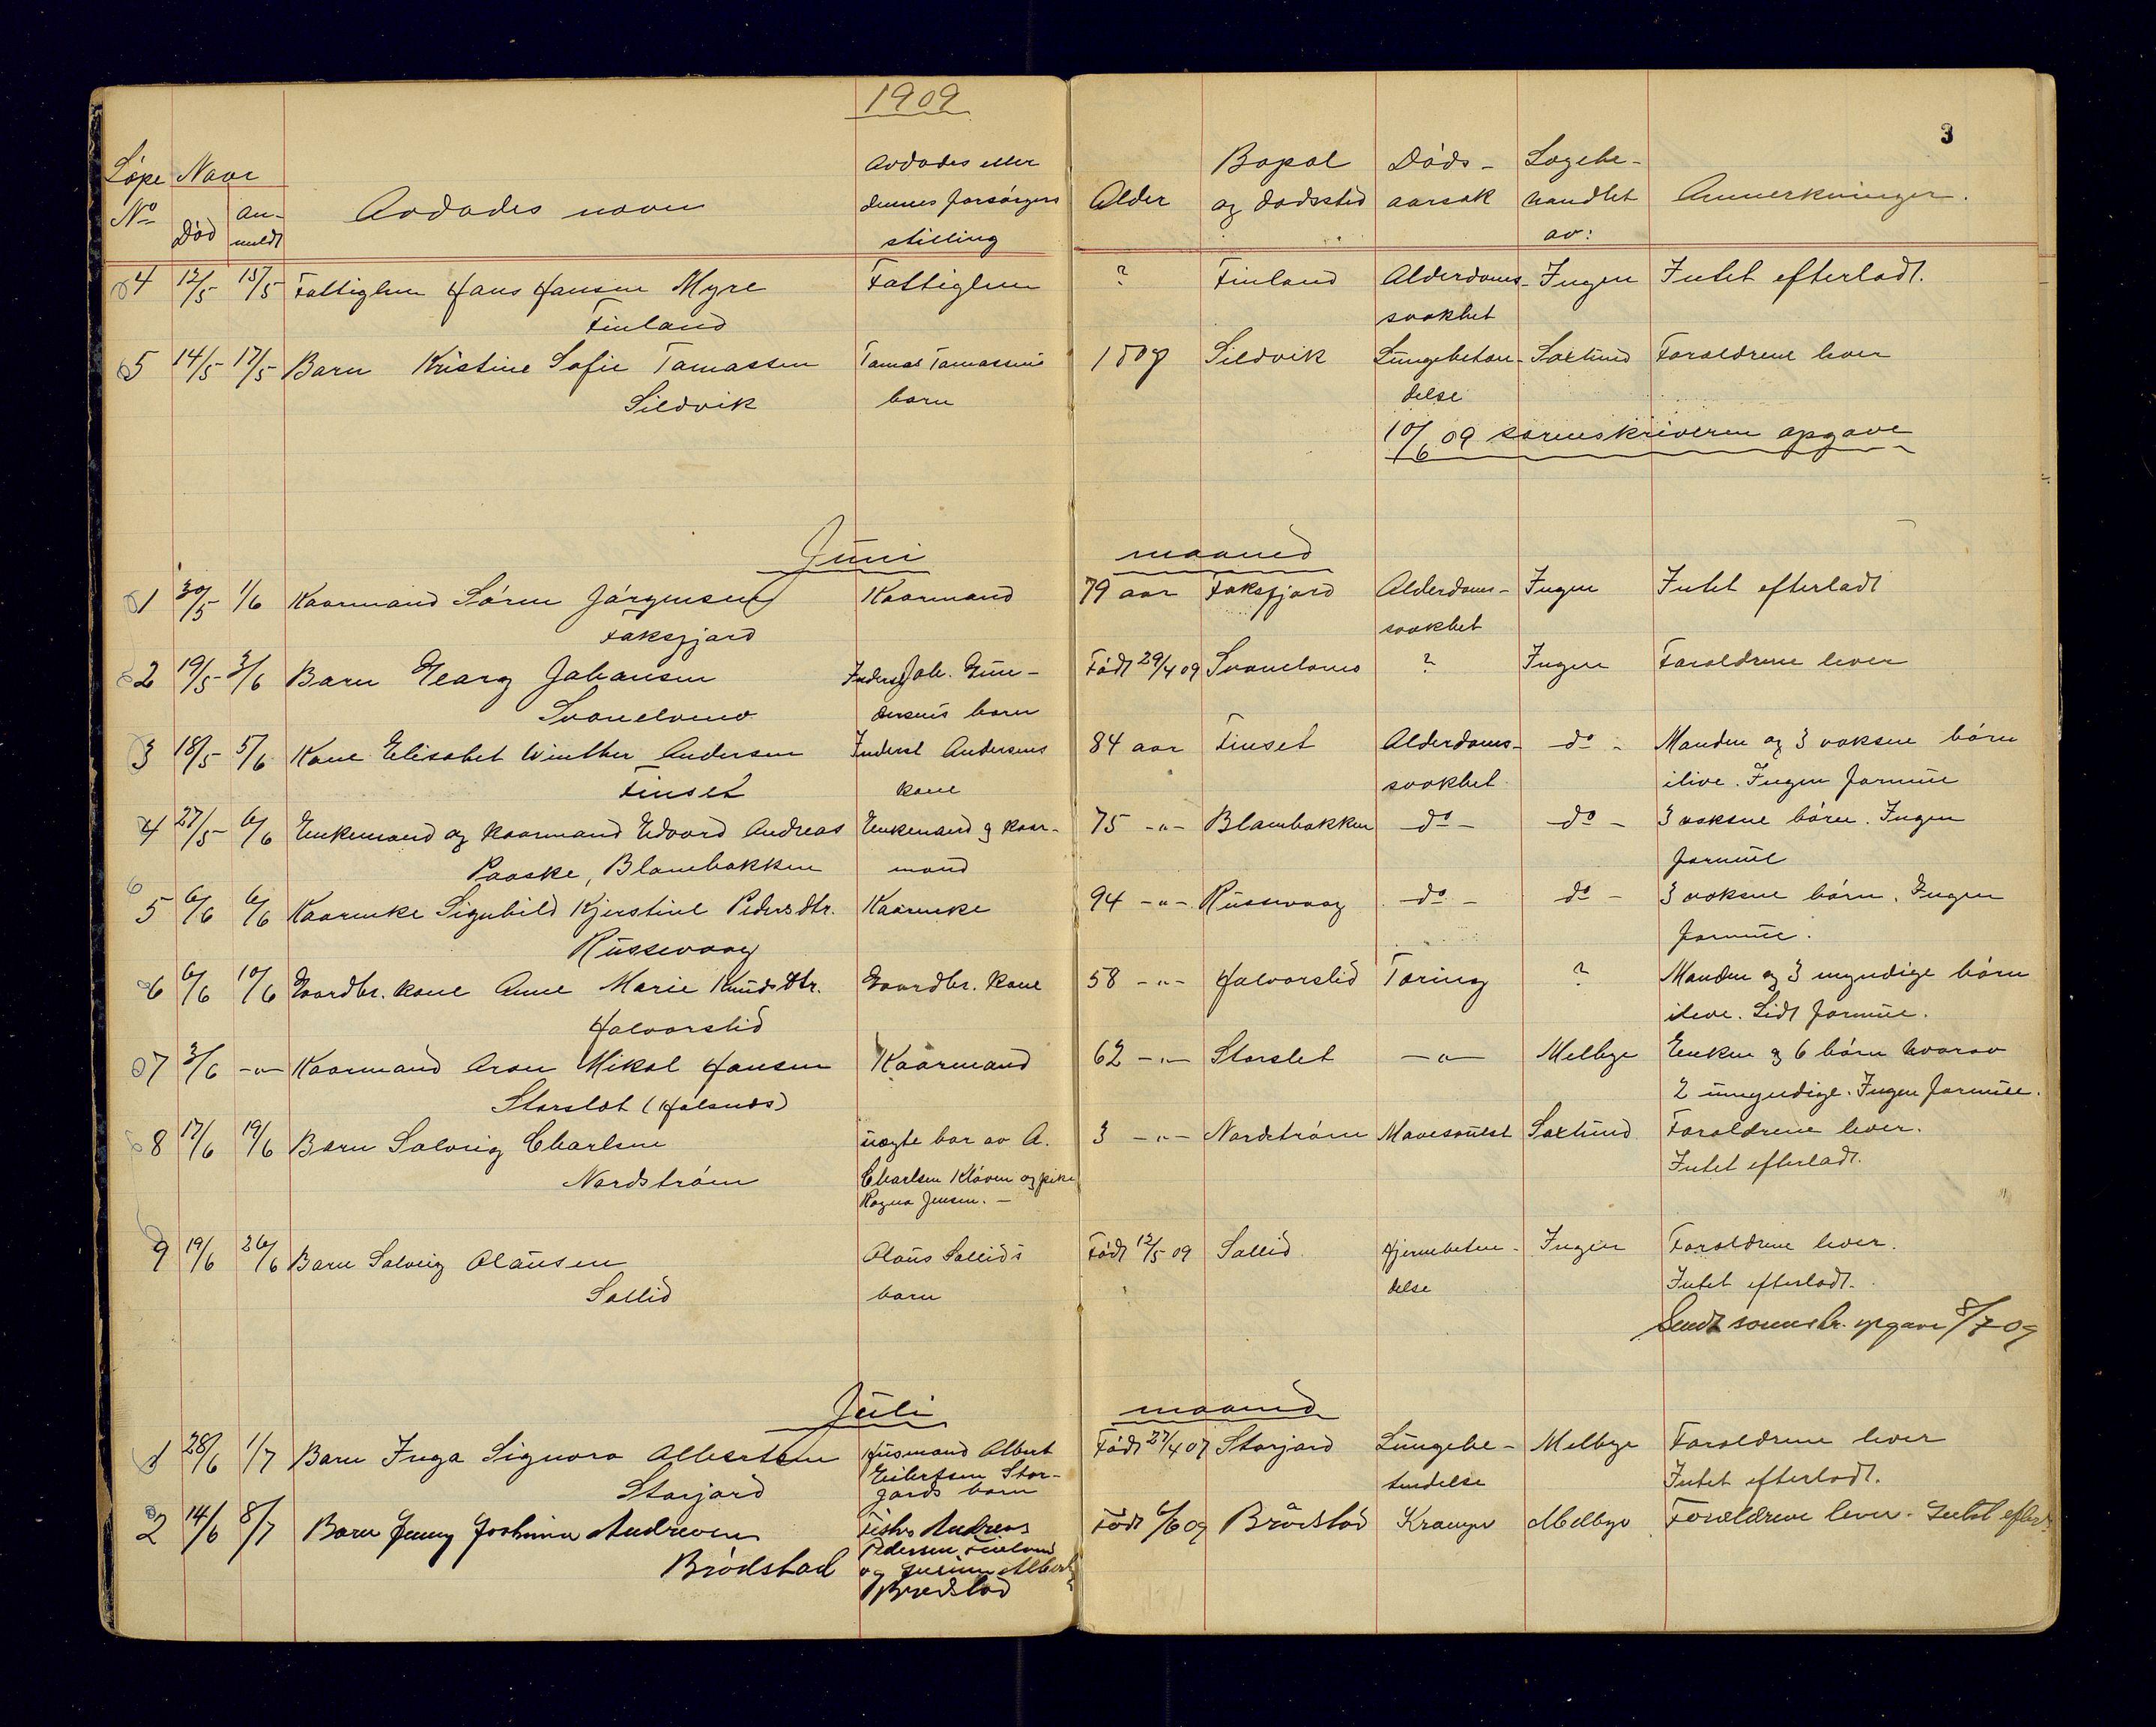 1909
3
Løpe Naar
No Død An-
meldt
Avdødes navn
Avdødes eller
dennes forsørgers
stilling
Alder
Bopæl
og dødssted
Døds-
aarsak
Lægebe-
handlet
av:
Anmerkninger.
4 12/5 15/5 Fattiglem Hans Hansen Myre Fattiglem ? Finland Alderdoms- Ingen Intet efterladt.
Finland svakhet
5 14/5 17/5 Barn Kristine Sofie Tomassen Tomas Tomassens Sildvik Lungebetæn- Saxlund Forældrene lever
Sildvik barn delse
10/6 09 sorenskriveren opgave
Juni maaned
1 30/5 1/6 Kaarmand Sören Jörgensen Kaarmand 79 aar Foksfjord Alderdoms- Ingen Intet efterladt
Foksfjord svakhet
2 19/5 3/6 Barn Georg Johansen Inderst Joh. Gun- Född 29/4 09 Svanelvmo ? Ingen Forældrene lever
Svanelvmo dersens barn
3 18/5 5/6 Kone Elisabet Winther Andersen Inderst Andersens 84 aar Finset Alderdoms- do - Manden og 3 voksne börn
Finset kone svakhet ilive. Ingen formue
4 27/5 6/6 Enkemand og kaarmand Edvard Andreas Enkemand og kaar- 75 -"- Blombakken do - do - 3 voksne börn. Ingen
Paaske, Blombakken mand formue
5 6/6 6/6 Kaarenke Signhild Kjerstine Pedersdtr. Kaarenke 94 -"- Russevaag do - do - 3 voksne börn. Ingen
Russevaag formue.
6 6/6 10/6 Gaardbr. kone Anne Marie Knudsdtr. Gaardbr. kone 58 -"- Halvorslid Tæring ? Manden og 3 myndige börn
Halvorslid ilive. Lidt formue.
7 3/6 -"- Kaarmand Aron Mikal Hansen Kaarmand 62 -"- Storslet -"- Melbye Enken og 6 börn hvorav
Storslet 2 umyndige. Ingen formue.
8 17/6 19/6 Barn Solveig Charlsen uægte bar av A. 3 -"- Nordström Mavesvulst Saxlund Forældrene lever.
Nordström Charlsen Klöven og pike Intet efterladt.
Ragna Jensen. -
9 19/6 26/6 Barn Solveig Olausen Olaus Sollid's Född 12/5 09 Sollid Hjernebeten- Ingen Forældrene lever.
Sollid barn delse Intet efterladt.
Sendt sorenskr. opgave 8/7 09
Juli maaned
1 28/6 1/7 Barn Inga Signora Albertsen Husmand Albert Född 27/4 07 Storjord Lungebe- Melbye Forældrene lever
Storjord Eilertsen Stor- tendelse Intet efterladt.
jords barn
2 14/6 8/7 Barn Jenny Andresen Fisker Andreas Född 6/6 09 Brödstad Krampe Melbye Forældrene lever. Intet
Brödstad Pedersen, Finland
og
Brødstad